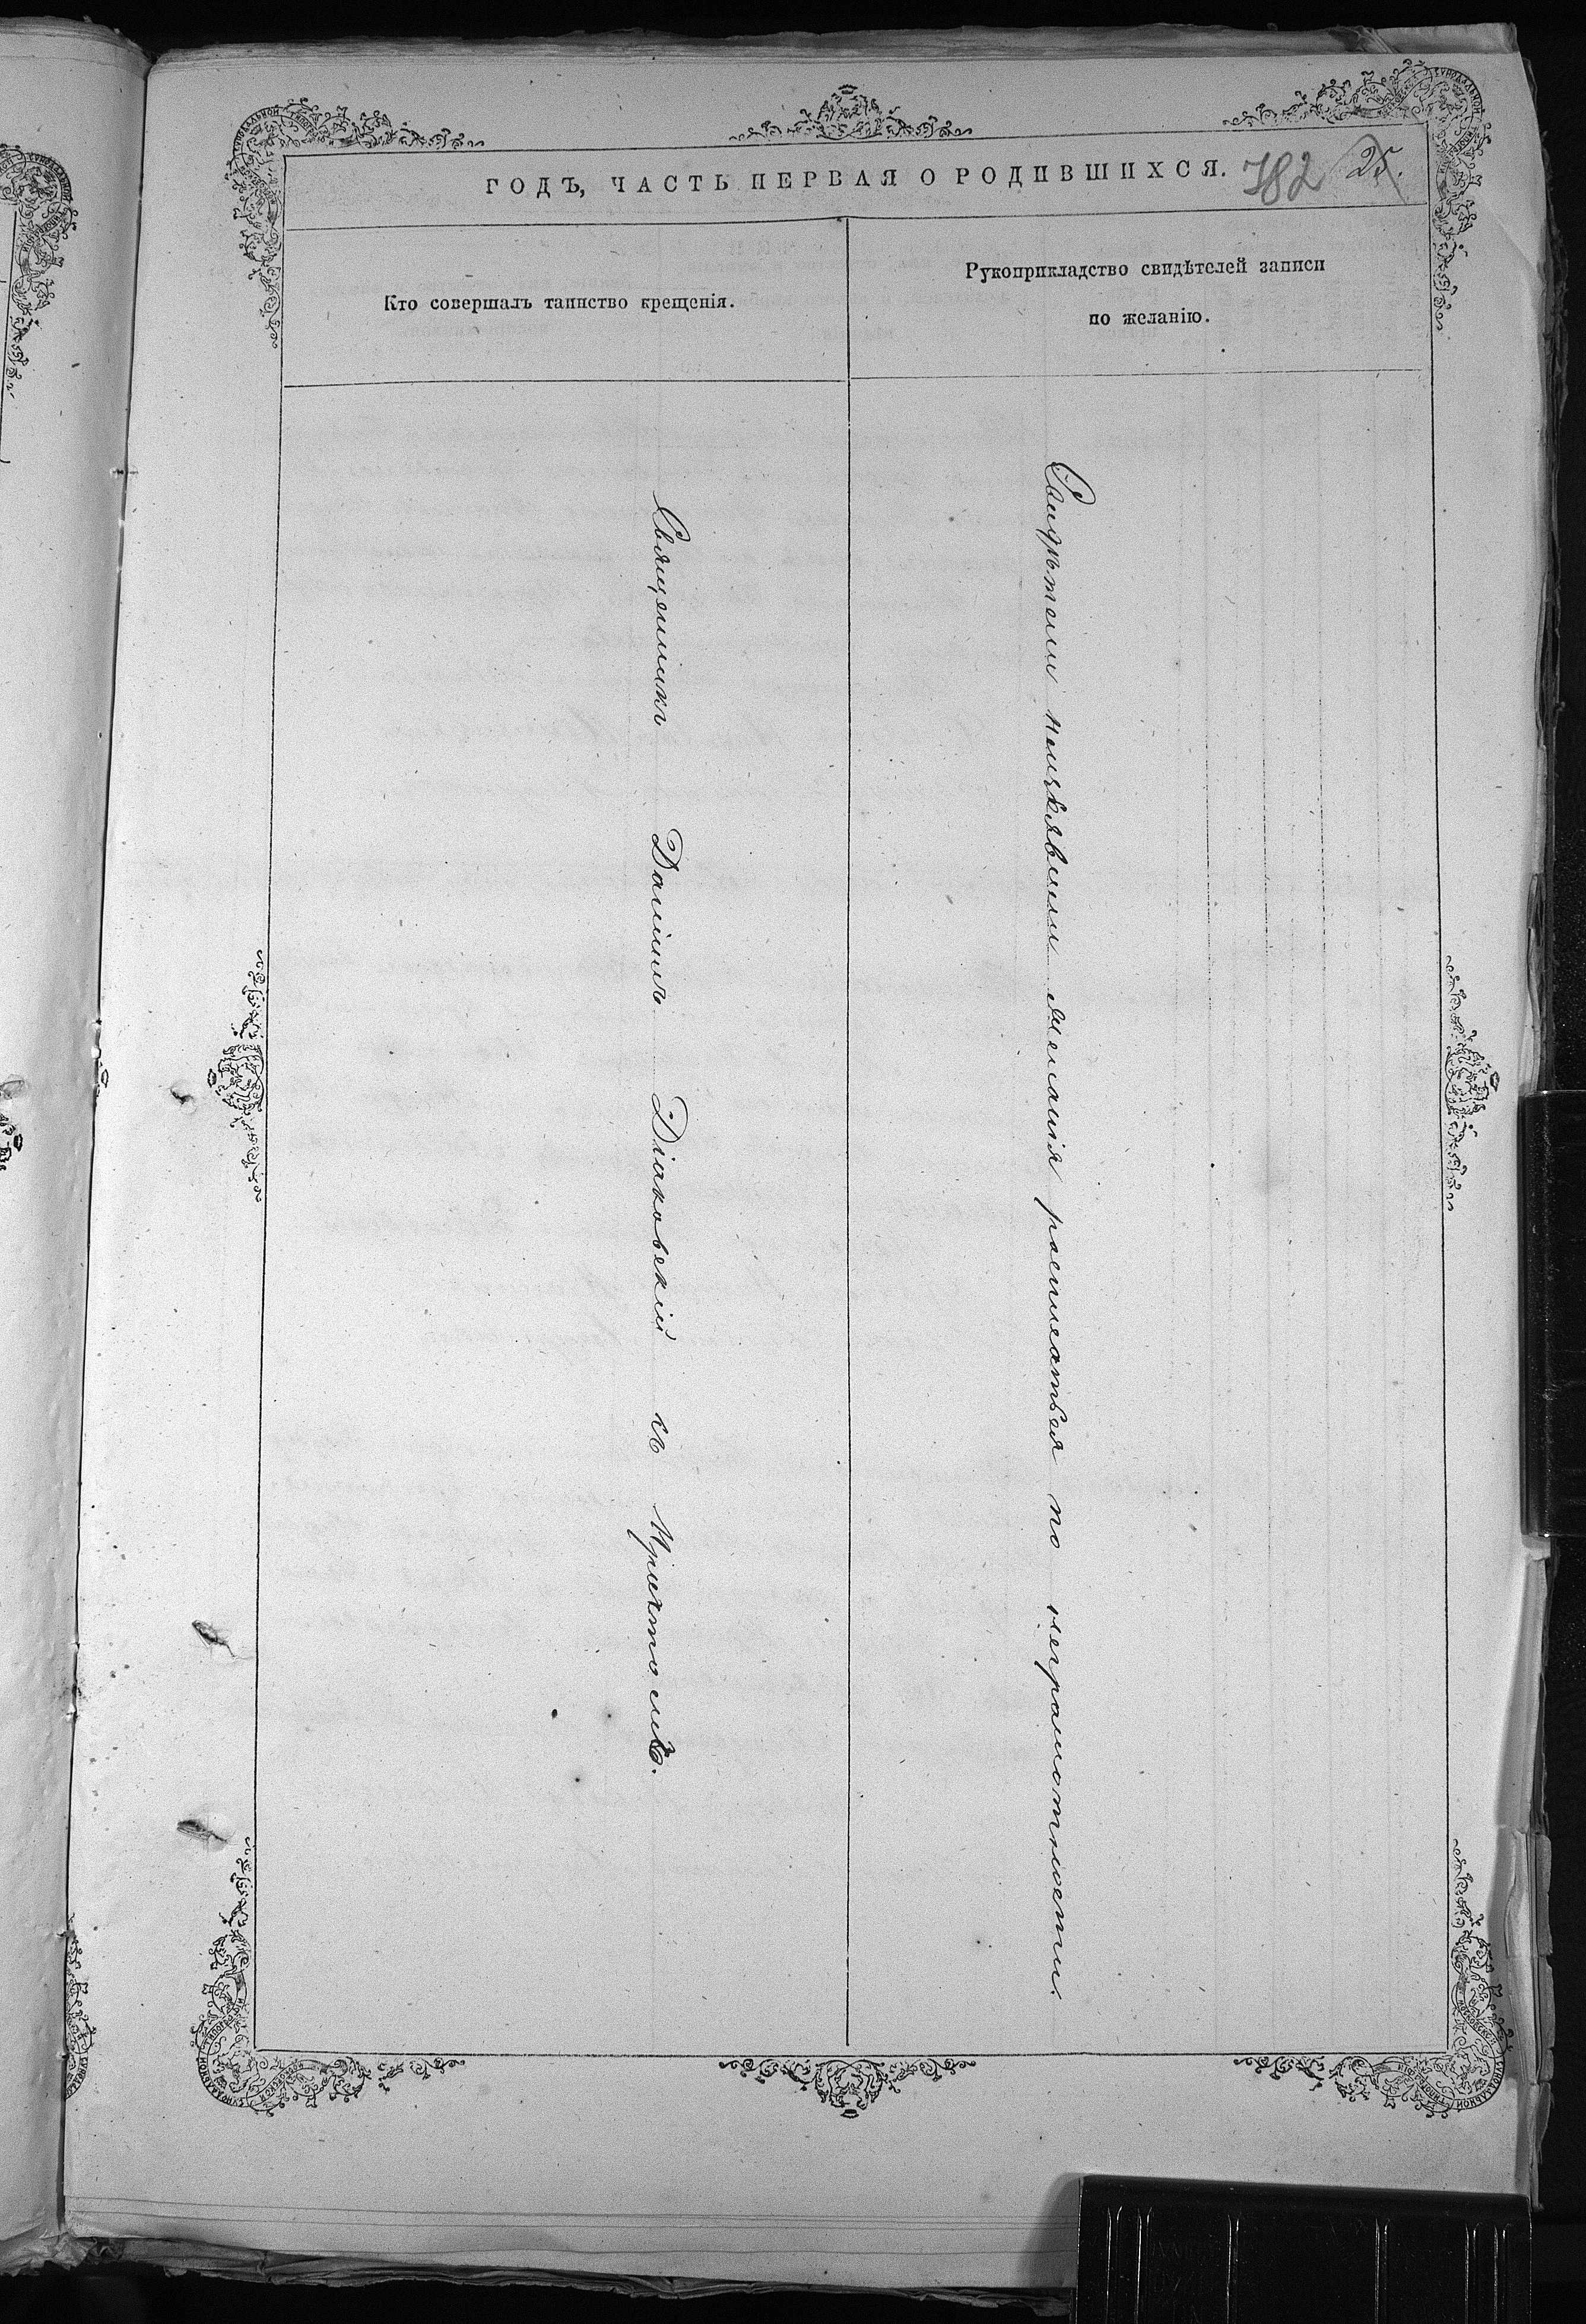 ГОДЪ, ЧАСТЬ ПЕРВАЯ О РОДИВШИХСЯ. 782 25.
Кто совершалъ таинство крещенія.
Рукоприкладство свидѣтелей записи
по желанію.
Священникъ Даніилъ Діаковскій съ
Свидѣтели неизъявили желанія росписатьея по неграмотности.